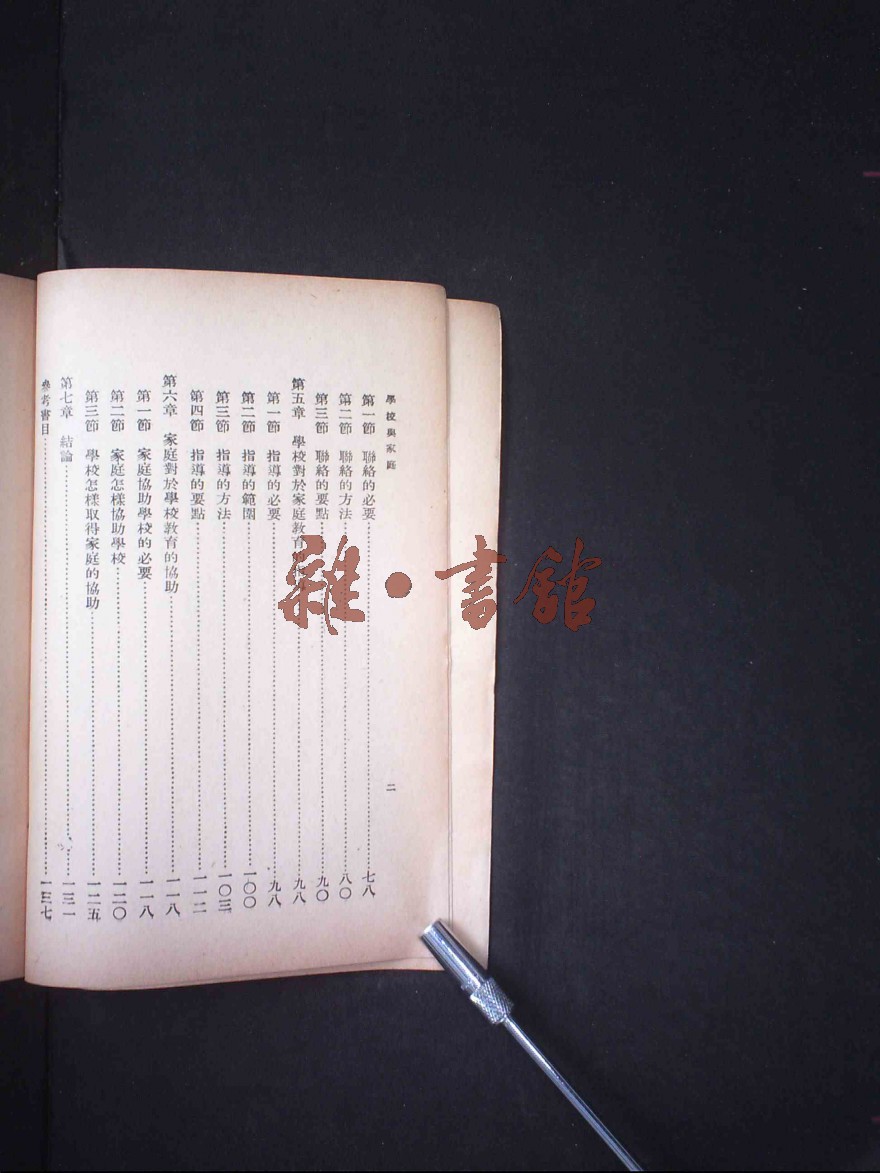 學校與家庭
二
第一節 聯絡的必要 七八
第二節 聯絡的方法 八〇
第三節 聯絡的要點 九〇
第五章 學校對於家庭教育的 九八
第一節 指導的必要 九八
第二節 指導的範圍 一〇〇
第三節 指導的方法 一〇三
第四節 指導的要點 一一二
第六章 家庭對於學校教育的協助 一一八
第一節 家庭協助學校的必要 一一八
第二節 家庭怎樣協助學校 一二〇
第三節 學校怎樣取得家庭的協助 一二五
第七章 結論 一三一
參考書目 一三七
雜·書館